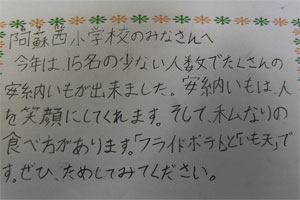 阿蘇西小学校のみなさんへ
今年は、15名の少ない人数でたくさんの
安納いもが出来ました。安納いもは、人
を笑顔にしてくれます。そして、私なりの
食べ方があります。「フライドポテト」と「いも天」で
す。ぜひ、ためしてみてください。